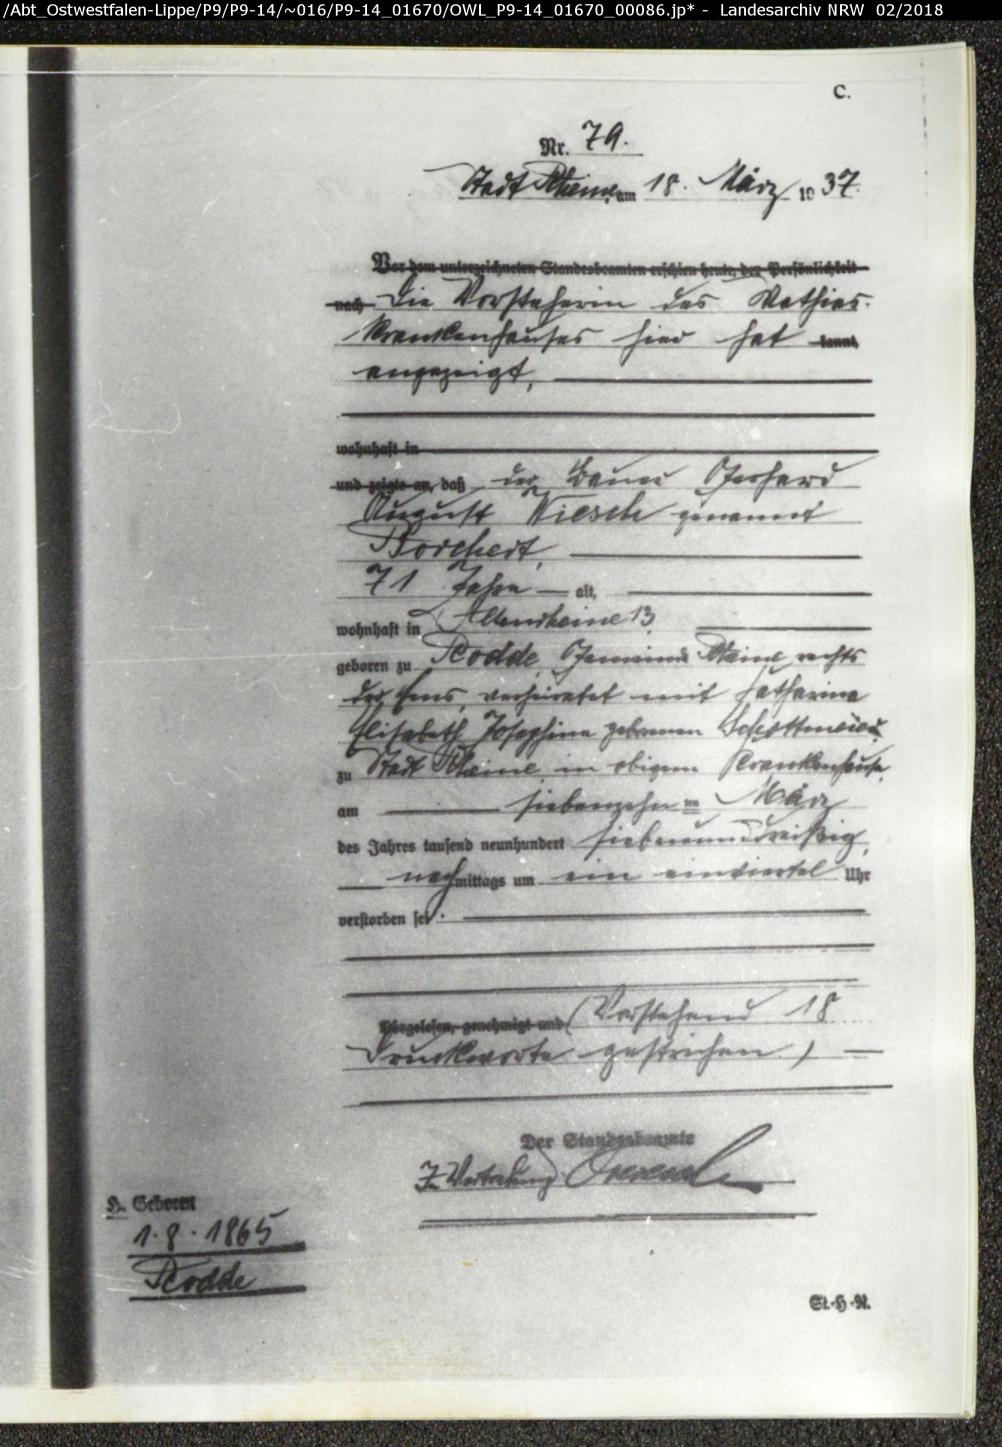 /Abt_Ostwestfalen-Lippe/P9/P9-14/~016/P9-14_01670/OWL_P9-14_01670_00086.jp* - Landesarchiv NRW 02/2018
C.
Nr. 79.
Stadt Rheine, am 18. März 1937.
Vor dem unterzeichneten Standesbeamten erschien heute, der Persönlichkeit
nach Die Vorsteherin des Mathias-
krankenhauses hier hat kannt,
angezeigt,
wohnhaft in
und zeigte an, daß der Bauer Gerhard
August Wiesch genannt
Borchert,
71 Jahre alt,
wohnhaft in Altenrheine 13
geboren zu Rodde, Gemeinde Rheine rechts
der Ems, verheiratet mit Katharina
Elisabeth Josephine geborenen Schottmeier,
zu Stadt Rheine in obigem Krankenhause,
am siebenzehnten März
des Jahres tausend neunhundert siebenunddreißig,
nachmittags um ein einviertel Uhr
verstorben sei.
Vorgelesen, genehmigt und (Vorstehend 18
Druckworte gestrichen.)
Der Standesbeamte
In Vertretung
H. Geboren
1.8.1865
Rodde
St.-H-R.